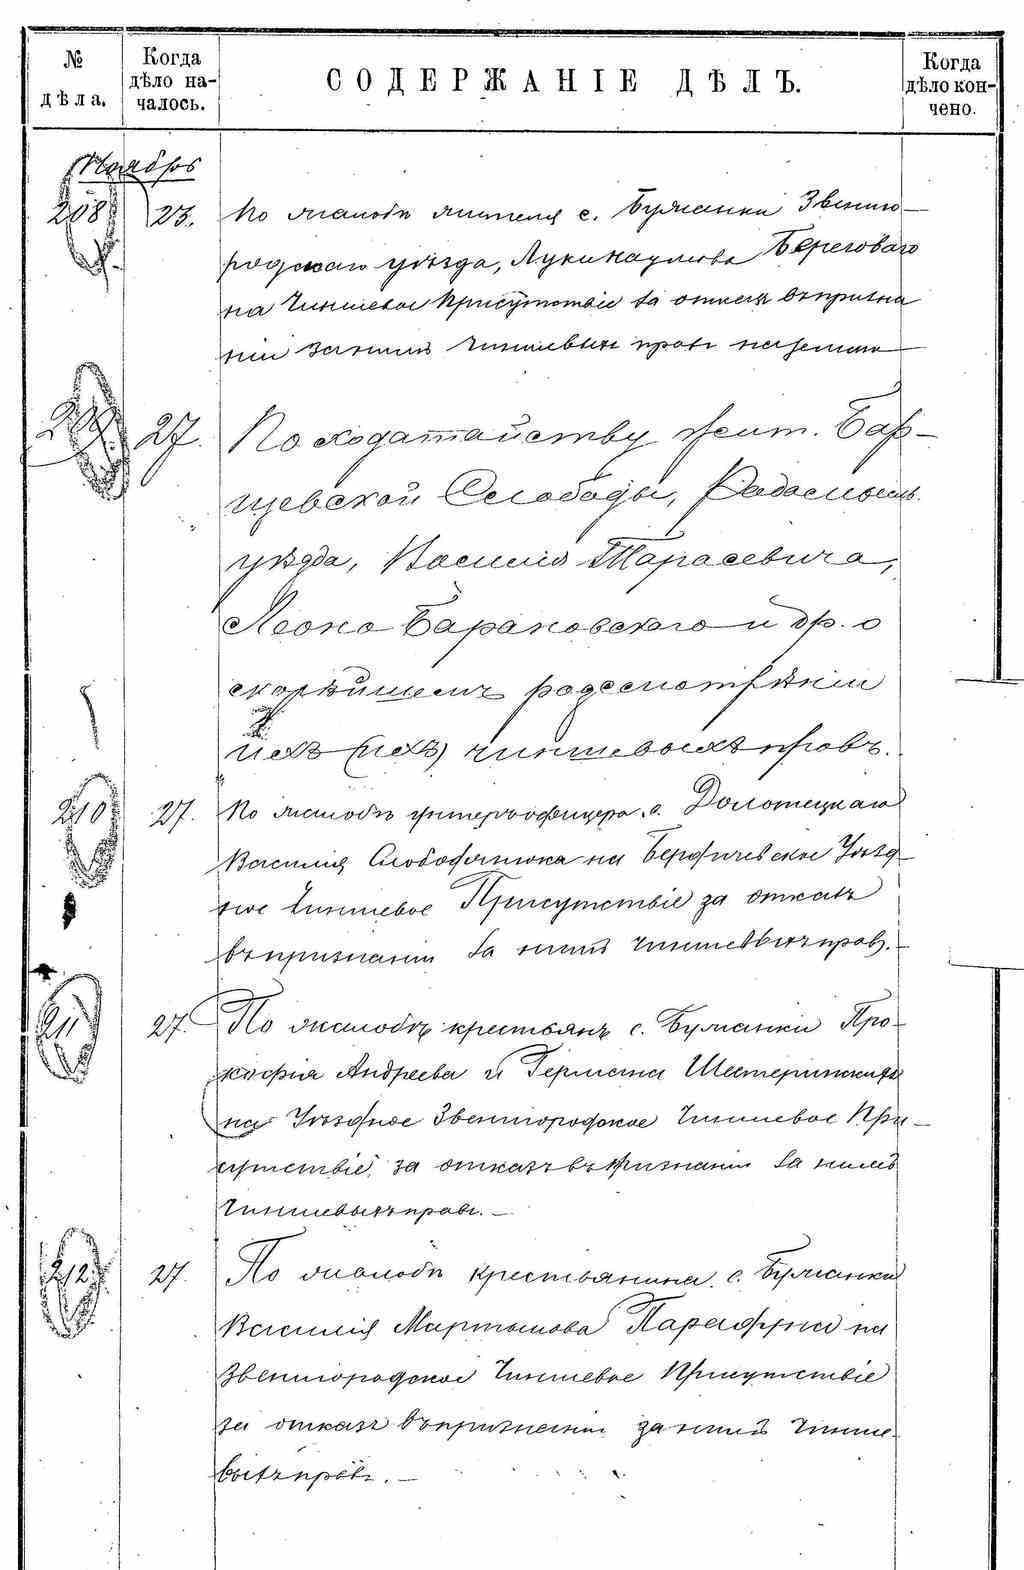 № дѣла.
Когда дѣло на-
чалось.
СОДЕРЖАНІЕ ДѢЛЪ.
Когда
дѣло кон-
чено.
Ноябрь
208
23.
По жалобѣ жителя с. Бужанки Звениго-
родскаго уѣзда, Луки Наумова Береговаго
на Чиншевое Присутствіе за отказъ въ призна
ніи за нимъ Чиншевыхъ правъ на землю
209
27.
По ходатайству жит. Бар-
щевской Слободы, Радомысль.
уѣзда, Василія Тарасевича,
Леона Барановскаго и др. о
скорѣйшемъ разсмотрѣніи
ихъ (ихъ) чиншевыхъ правъ.
210
27.
По жалобѣ унтеръ-офицера, с. Долотецкаго
Василія Слободянюка на Бердичевское Уѣзд
ное Чиншевое Присутствіе за отказъ
въ признаніи за нимъ Чиншевыхъ правъ.
211
27.
По жалобѣ крестьянъ с. Бужанки Про-
кофія Андреева и Германа Шестеринскихъ
на Уѣздное Звенигородское Чиншевое При-
сутствіе, за отказъ въ признаніи за ними
Чиншевыхъ правъ.
212
27.
По жалобѣ крестьянина с. Бужанки
Василія Мартынова на
Звенигородское Чиншевое Присутствіе
за отказъ въ признаніи за нимъ Чинше-
выхъ правъ.